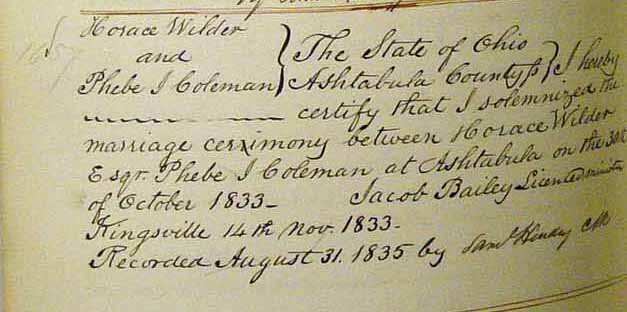 Horace Wilder
and } The State of Ohio
Phebe J Coleman } Ashtabula County ss } I hereby
certify that I solemnized the
marriage cerimony between Horace Wilder
Esqr. Phebe J Coleman at Ashtabula on the 30th
of October 1833 - Jacob Bailey Licented minister
Kingsville 14th Nov. 1833 -
Recorded August 31. 1835 by Saml Hendry